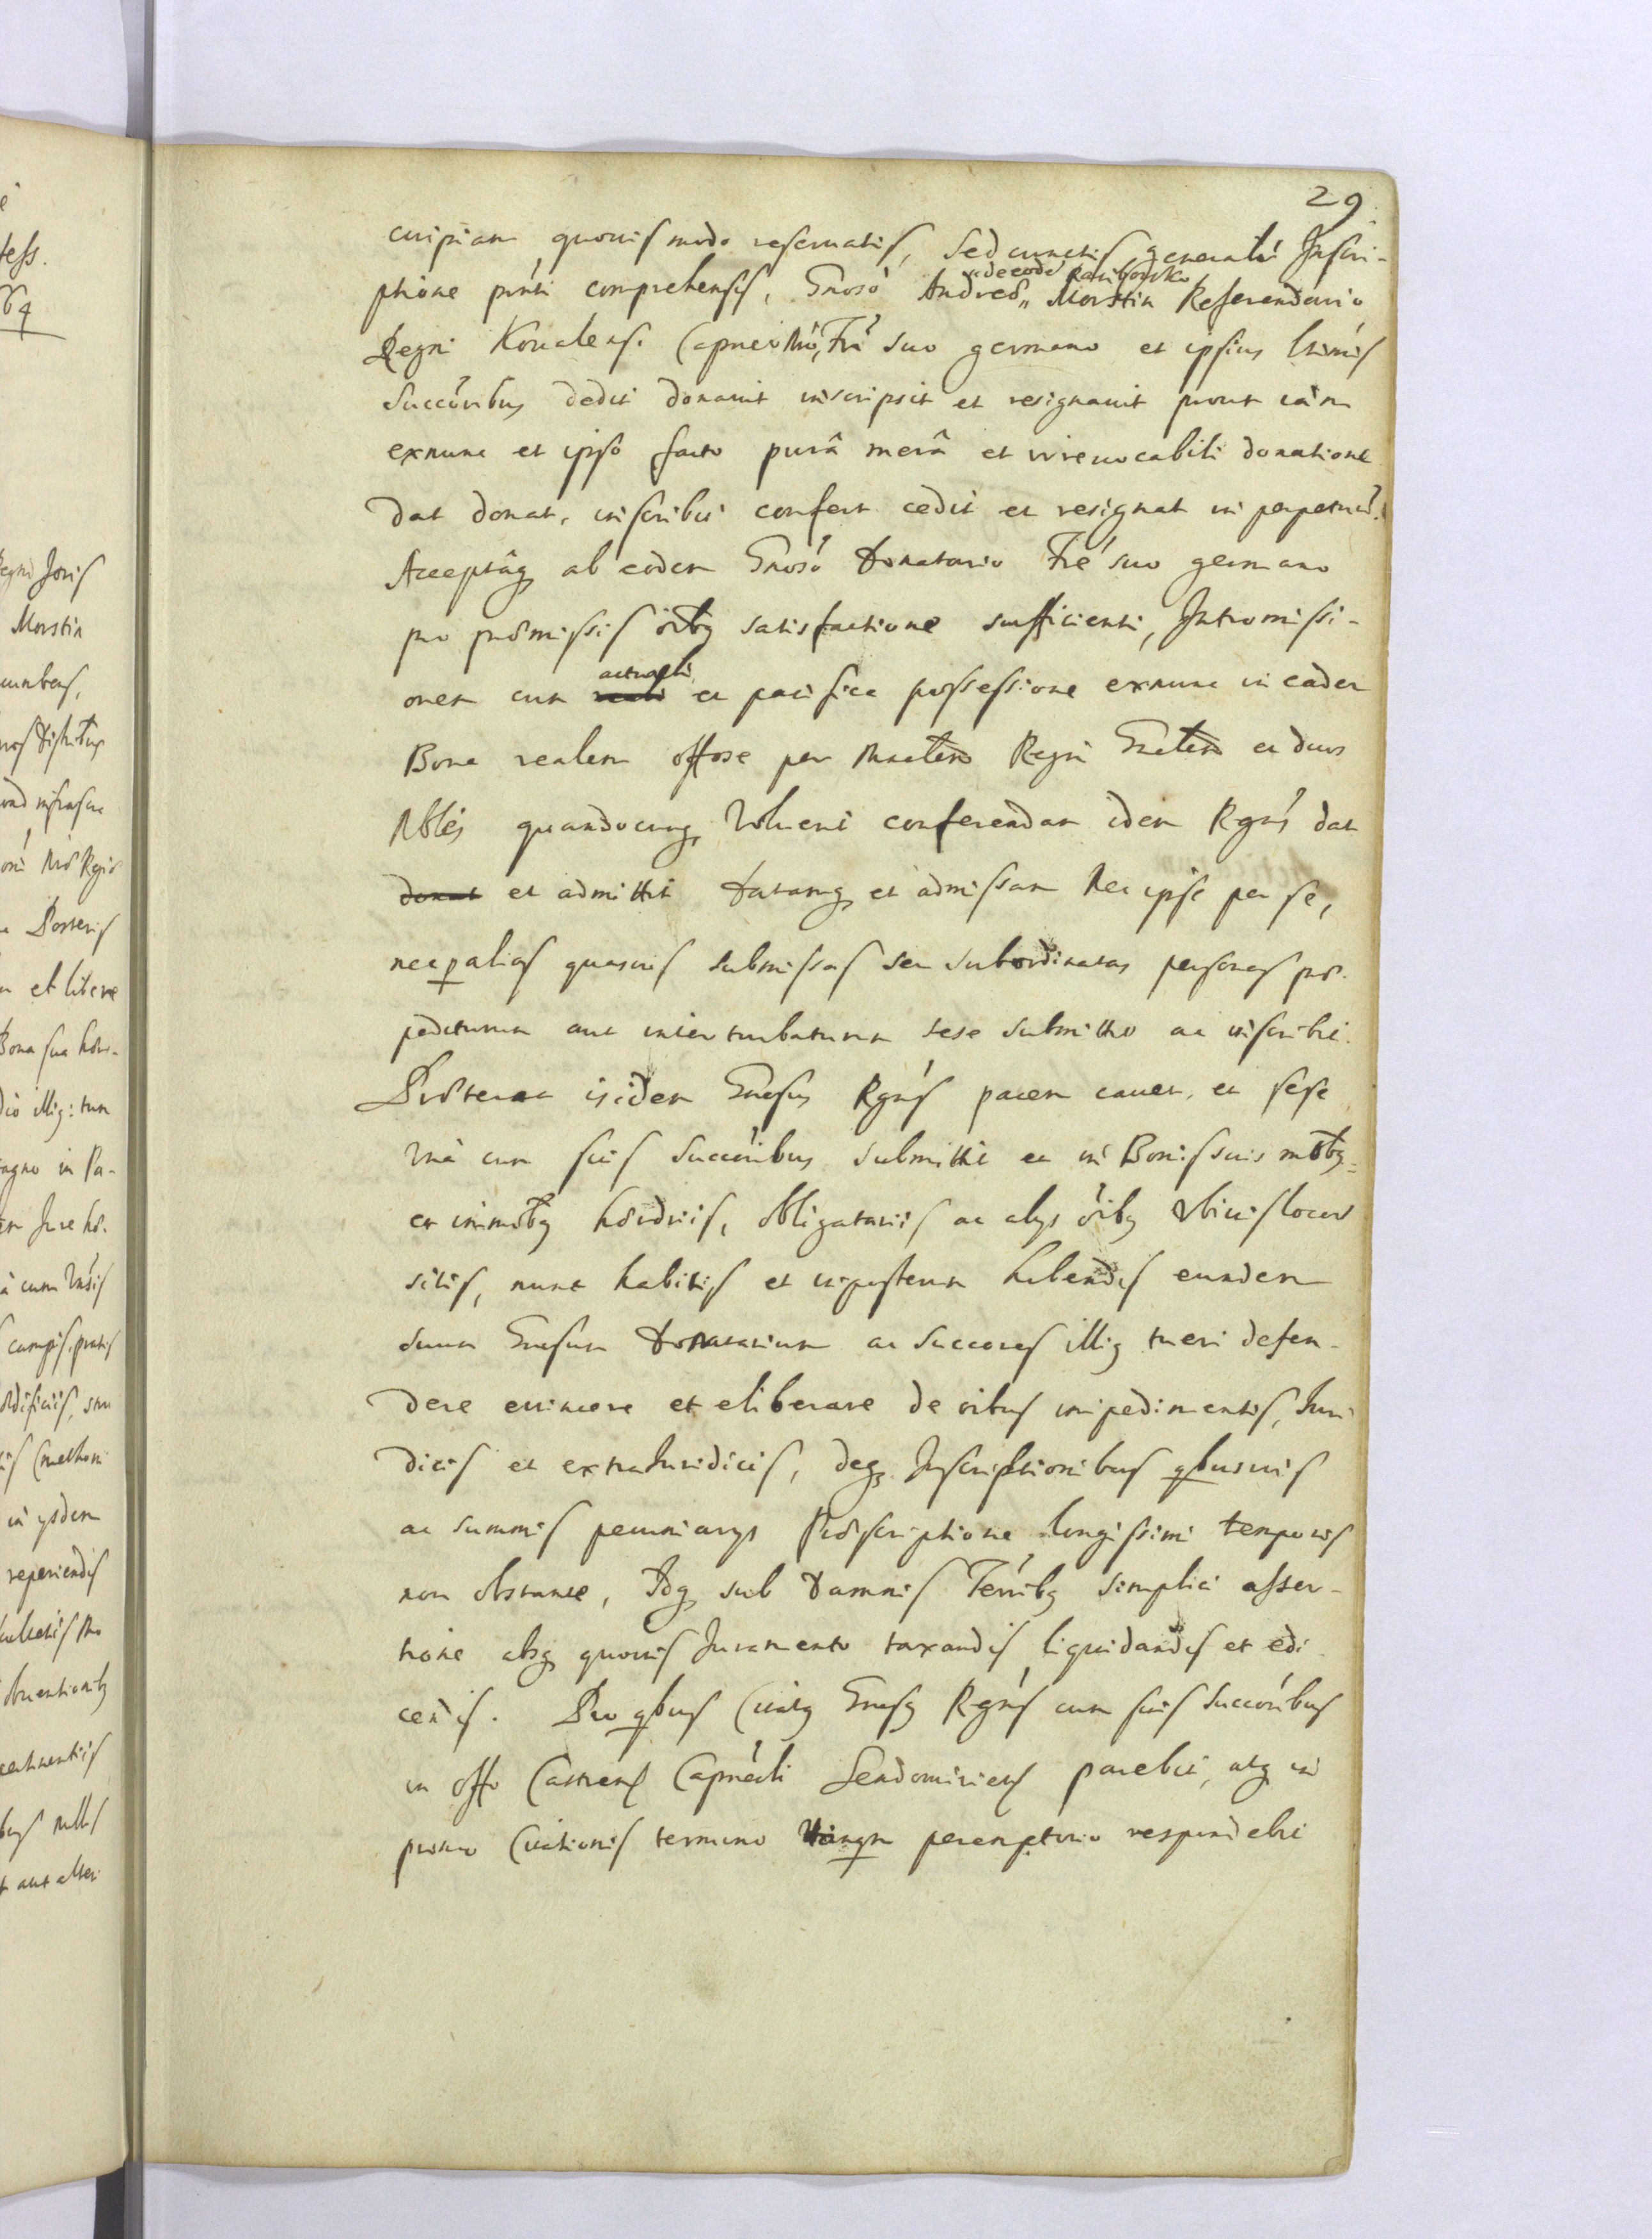 29.
cuipiam quovis modo reservatis, sed cunctis generali Inscri-
ptione pnti comprehensis, Gnoso Andreæ de eode Raciborsko Morstin Referendario
Regni Kovalensi Capneo Mo, Fri suo germano et ipsius ltimis
Succoribus dedit donavit inscripsit et resignavit prout iam
exnunc et ipso facto purâ merâ et irrevocabili donatione
dat donat, inscribit confert cedit et resignat in perpetuu.
Acceptâq ab eodem Gnoso Donatario Fre suo germano
pro præmissis oibq satisfactione sufficienti, Intromissi-
onem cum actuali et pacifica possessione exnunc in eadem
Bona realem offose per Mnrlem Regni Gnrlem et duos
Nbles quandocunq voluerit conferendam idem Rgns dat
donat et admittit Datamq et admissam nec ipse per se,
nec p alias quasvis submissas seu subordinatas personas præ-
pediturum aut interturbaturum sese submittit ac inscribit.
Præterea isidem Gnosus Rgns pacem cavet, et sese
Una cum suis Succoribus submittit et in Bonis suis mobq
et immobq hæredriis, obligatariis ac alys oibq ubivis locor
sitis, nunc habitis et inposterum habendis eundem
suum Gnosum Donatarium ac Succores illiq tueri defen-
dere evincere et eliberare de oibus impedimentis, Juri
dicis et extraJuridicis, deq Inscriptionibus qbusvis
ac summis pecuniarys Præscriptione longissimi temporis
non obstante, Idq sub Damnis Terribq simplici asser-
tione absq quovis Juramento taxandis, liquidandis et edi
cendis. Pro qbus Citatq Gnosq Rgns cum suis Succoribus
in offo Castrensi Capneali Sendomiriensi parebit, atq in
primo Citationis termino tanqm peremptorio respondebit